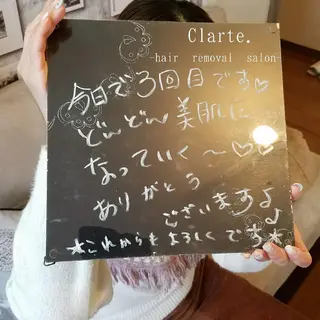 Clarte.
hair removal salon
今日で3回目です♡
どんどん美肌に
なっていく〜♡♡
ありがとう
ございますよ
★これからもよろしくです★